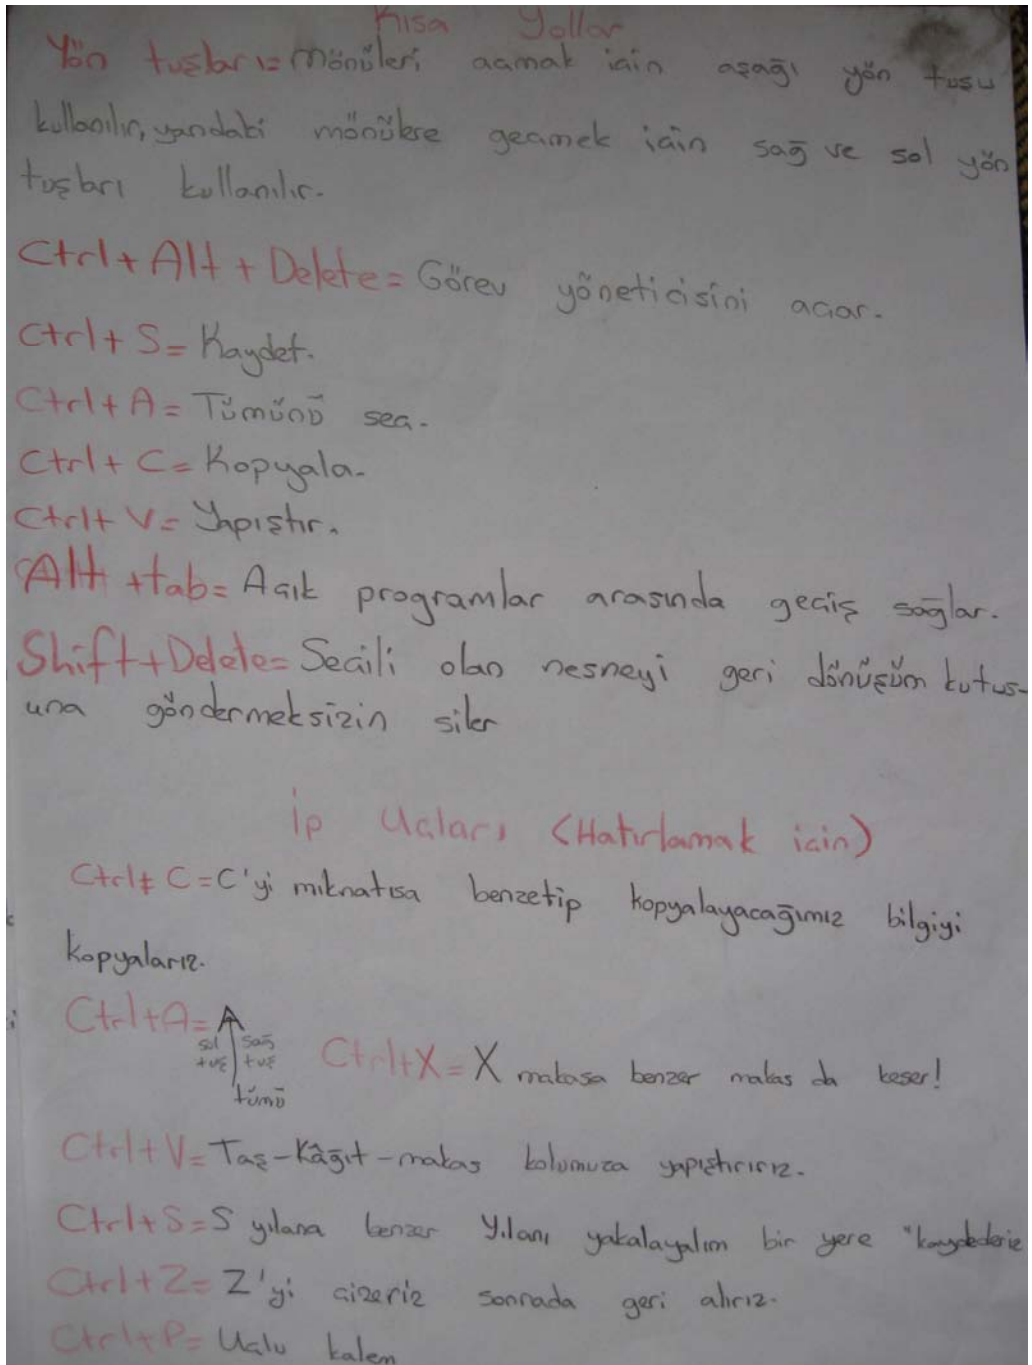 Kısa Yollar
Yön tuşları=Mönüleri açmak için aşağı yön tuşu
kullanılır, yandaki mönülere geçmek için sağ ve sol yön
tuşları kullanılır.
Ctrl+Alt+Delete=Görev yöneticisini açar.
Ctrl+S=Kaydet.
Ctrl+A=Tümünü seç.
Ctrl+C=Kopyala.
Ctrl+V=Yapıştır.
Alt+tab=Açık programlar arasında geçiş sağlar.
Shift+Delete=Seçili olan nesneyi geri dönüşüm kutus-
una göndermeksizin siler
İp Uçları (Hatırlamak için)
Ctrl+C=C'yi mıknatısa benzetip kopyalayacağımız bilgiyi
kopyalarız.
Ctrl+A=A
sol tuş sağ tuş
tümü
Ctrl+X=X makasa benzer makas da keser!
Ctrl+V=Taş-Kâğıt-makas kolumuza yapıştırırız.
Ctrl+S=S yılana benzer Yılanı yakalayalım bir yere "kaydederiz
Ctrl+Z=Z'yi çizeriz sonrada geri alırız.
Ctrl+P=Uçlu kalem